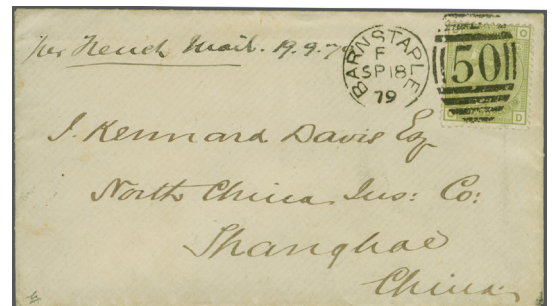 per French Mail. 19.9.79
BARNSTAPLE
F
SP 18
79
50
O
O D
J. Kennard Davis Esq
North China Ins: Co:
Shanghae
China